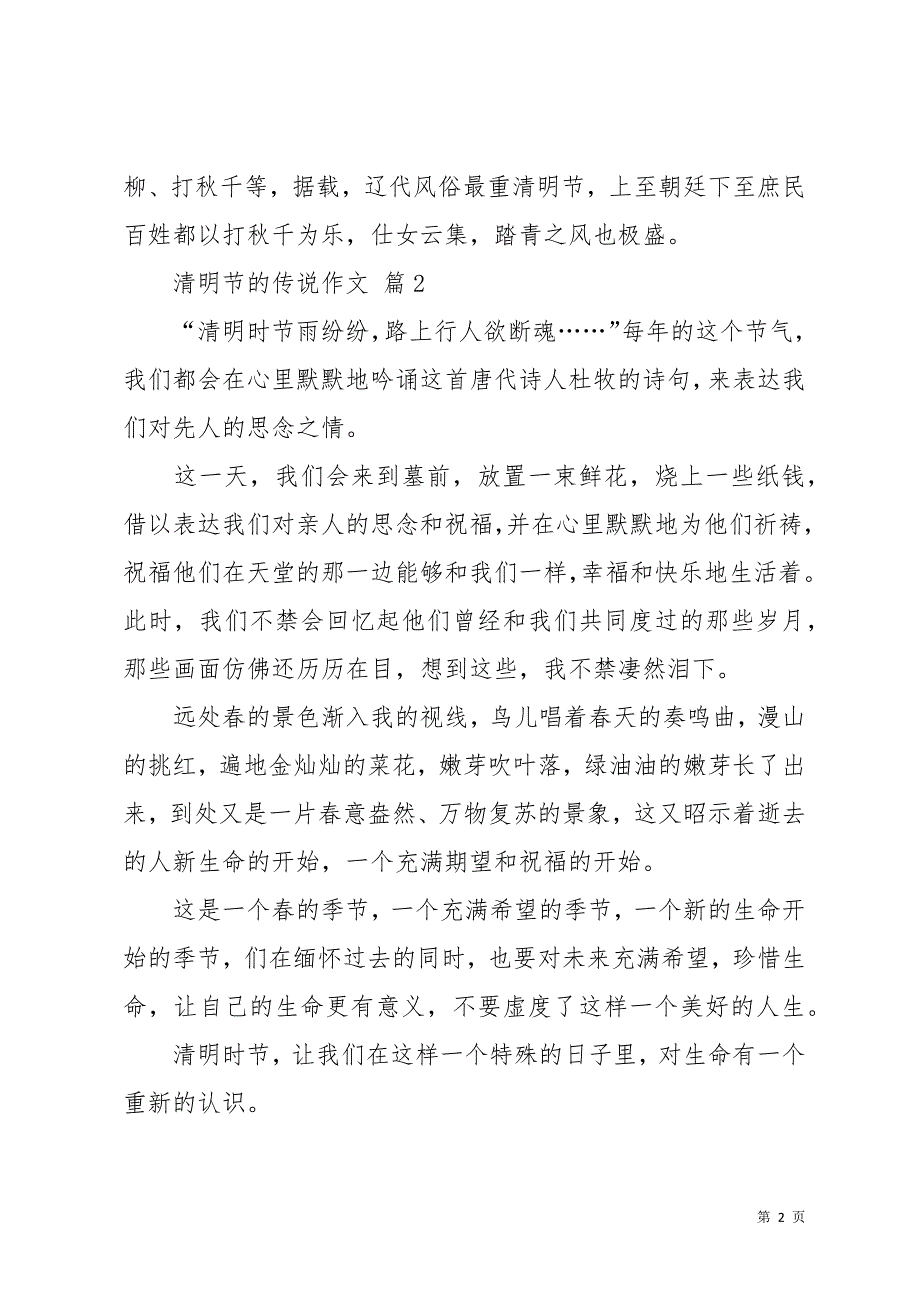 柳、打秋千等，据载，辽代风俗最重清明节，上至朝廷下至庶民
百姓都以打秋千为乐，仕女云集，踏青之风也极盛。
清明节的传说作文 篇2
“清明时节雨纷纷，路上行人欲断魂……”每年的这个节气，
我们都会在心里默默地吟诵这首唐代诗人杜牧的诗句，来表达我
们对先人的思念之情。
这一天，我们会来到墓前，放置一束鲜花，烧上一些纸钱，
借以表达我们对亲人的思念和祝福，并在心里默默地为他们祈祷，
祝福他们在天堂的那一边能够和我们一样，幸福和快乐地生活着。
此时，我们不禁会回忆起他们曾经和我们共同度过的那些岁月，
那些画面仿佛还历历在目，想到这些，我不禁凄然泪下。
远处春的景色渐入我的视线，鸟儿唱着春天的奏鸣曲，漫山
的挑红，遍地金灿灿的菜花，嫩芽吹叶落，绿油油的嫩芽长了出
来，到处又是一片春意盎然、万物复苏的景象，这又昭示着逝去
的人新生命的开始，一个充满期望和祝福的开始。
这是一个春的季节，一个充满希望的季节，一个新的生命开
始的季节，们在缅怀过去的同时，也要对未来充满希望，珍惜生
命，让自己的生命更有意义，不要虚度了这样一个美好的人生。
清明时节，让我们在这样一个特殊的日子里，对生命有一个
重新的认识。
第 2 页